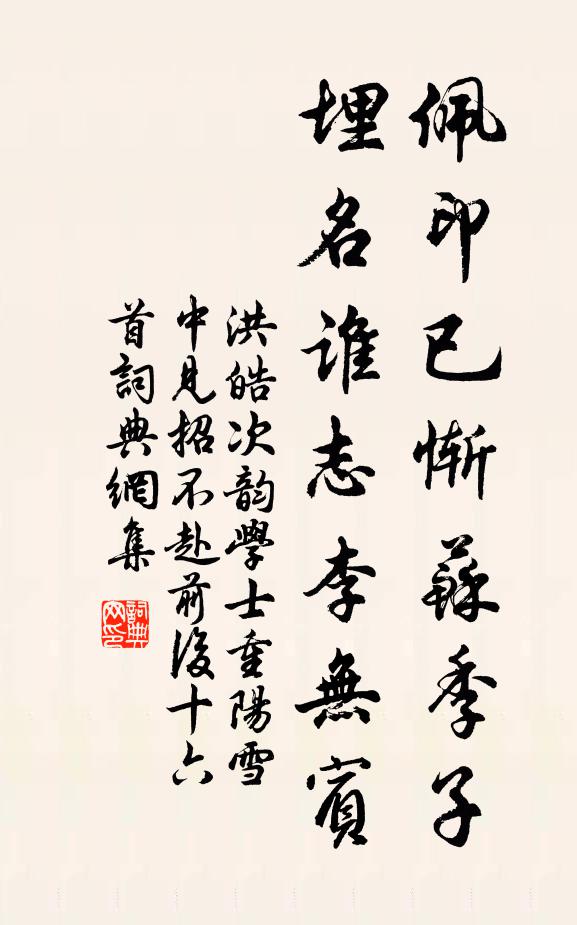 佩印已慚蘇季子
埋名誰志李無賓
洪皓次韵學士重陽雪
中見招不赴前後十六
首詞典網集
詞典
网印